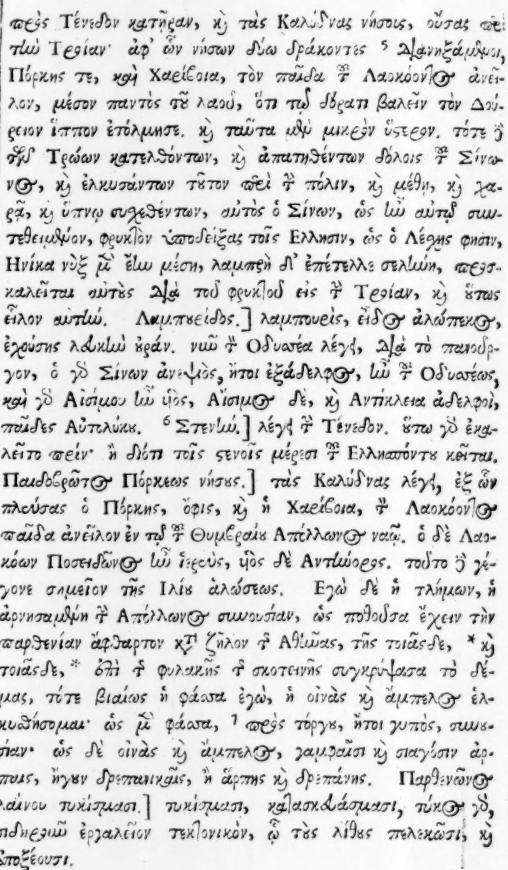 πρὸς Τένεδον κατῆραν, καὶ τὰς Καλύδνας νήσοις, οὔσας περὶ
τὴν Τροίαν· ἀφ' ὧν νήσων δύω δράκοντες ⁵ διανηξάμενοι,
Πόρκης τε, καὶ Χαρίβοια, τὸν παῖδα τοῦ Λαοκόοντος ἀνεῖ-
λον, μέσον παντὸς τοῦ λαοῦ, ὅτι τῷ δόρατι βαλεῖν τὸν Δού-
ρειον ἵππον ἐτόλμησε. καὶ ταῦτα μὲν μικρὸν ὕστερον. τότε δὲ
τῶν Τρώων κατελθόντων, καὶ ἀπατηθέντων δόλοις τοῦ Σίνω-
νος, καὶ ἑλκυσάντων τοῦτον περὶ τὴν πόλιν, καὶ μέθῃ, καὶ χα-
ρᾷ, καὶ ὕπνῳ συχεθέντων, αὐτὸς ὁ Σίνων, ὡς ἦν αὐτῷ συν-
τεθειμένον, φρυκτὸν ὑποδείξας τοῖς Ελλησιν, ὡς ὁ Λέσχης φησὶν,
Ηνίκα νὺξ μὲν ἔην μέση, λαμπρὴ δ' ἐπέτελλε σελήνη, προσ-
καλεῖται αὐτοὺς διὰ τοῦ φρυκτοῦ εἰς τὴν Τροίαν, καὶ οὕτως
εἷλον αὐτήν. Λαμπουρίδος.] λαμπουρὶς, εἶδος ἀλώπεκος,
ἐχούσης λευκὴν οὐράν. νῦν τὸν Οδυσσέα λέγει, διὰ τὸ πανοῦρ-
γον, ὁ γὰρ Σίνων ἀνεψιὸς, ἤτοι ἐξάδελφος, ἦν τοῦ Οδυσσέως,
καὶ γὰρ Αἰσίμου ἦν υἱὸς, Αἴσιμος δὲ, καὶ Αντίκλεια ἀδελφοὶ,
παῖδες Αὐτολύκου. ⁶ Στενήν.] λέγει τὴν Τένεδον. οὕτω γὰρ ἐκα-
λεῖτο πρίν· ἢ διότι τοῖς στενοῖς μέρεσι τοῦ Ελλησπόντου κεῖται.
Παιδοβρῶτος Πόρκεως νήσους.] τὰς Καλύδνας λέγει, ἐξ ὧν
πλεύσας ὁ Πόρκης, ὄφις, καὶ ἡ Χαρίβοια, τὸν Λαοκόοντος
παῖδα ἀνεῖλον ἐν τῷ τοῦ Θυμβραίου Απόλλωνος ναῷ. ὁ δὲ Λαο-
κόων Ποσειδῶνος ἦν ἱερεὺς, υἱὸς δὲ Αντήνορος. τοῦτο δὲ γέ-
γονε σημεῖον τῆς Ιλίου ἁλώσεως. Εγὼ δὲ ἡ τλήμων, ἡ
ἀρνησαμένη τὴν Απόλλωνος συνουσίαν, ὡς ποθοῦσα ἔχειν τὴν
παρθενίαν ἄφθαρτον κατὰ ζῆλον τῆς Αθηνᾶς, τῆς τοιᾶσδε, * καὶ
τοιᾶσδε, * ἐπὶ τῆς φυλακῆς τῆς σκοτεινῆς συγκρύψασα τὸ δέ-
μας, τότε βιαίως ἡ φάσσα ἐγὼ, ἡ οἰνὰς καὶ ἄμπελος ἑλ-
κυσθήσομαι· ὡς μὲν φάσσα, ⁷ πρὸς τόργου, ἤτοι γυπὸς, συνου-
σίαν· ὡς δὲ οἰνὰς καὶ ἄμπελος, γαμφαῖσι καὶ σιαγόσιν ἅρ-
παις, ἤγουν δρεπανικαῖς, ἢ ἅρπης καὶ δρεπάνης. Παρθενῶνος
λαΐνου τυκίσμασι.] τυκίσμασι, κατασκευάσμασι, τύκος γὰρ,
σιδηροῦν ἐργαλεῖον τεκτονικὸν, ᾧ τοὺς λίθους πελεκῶσι, καὶ
ἀποξέουσι.